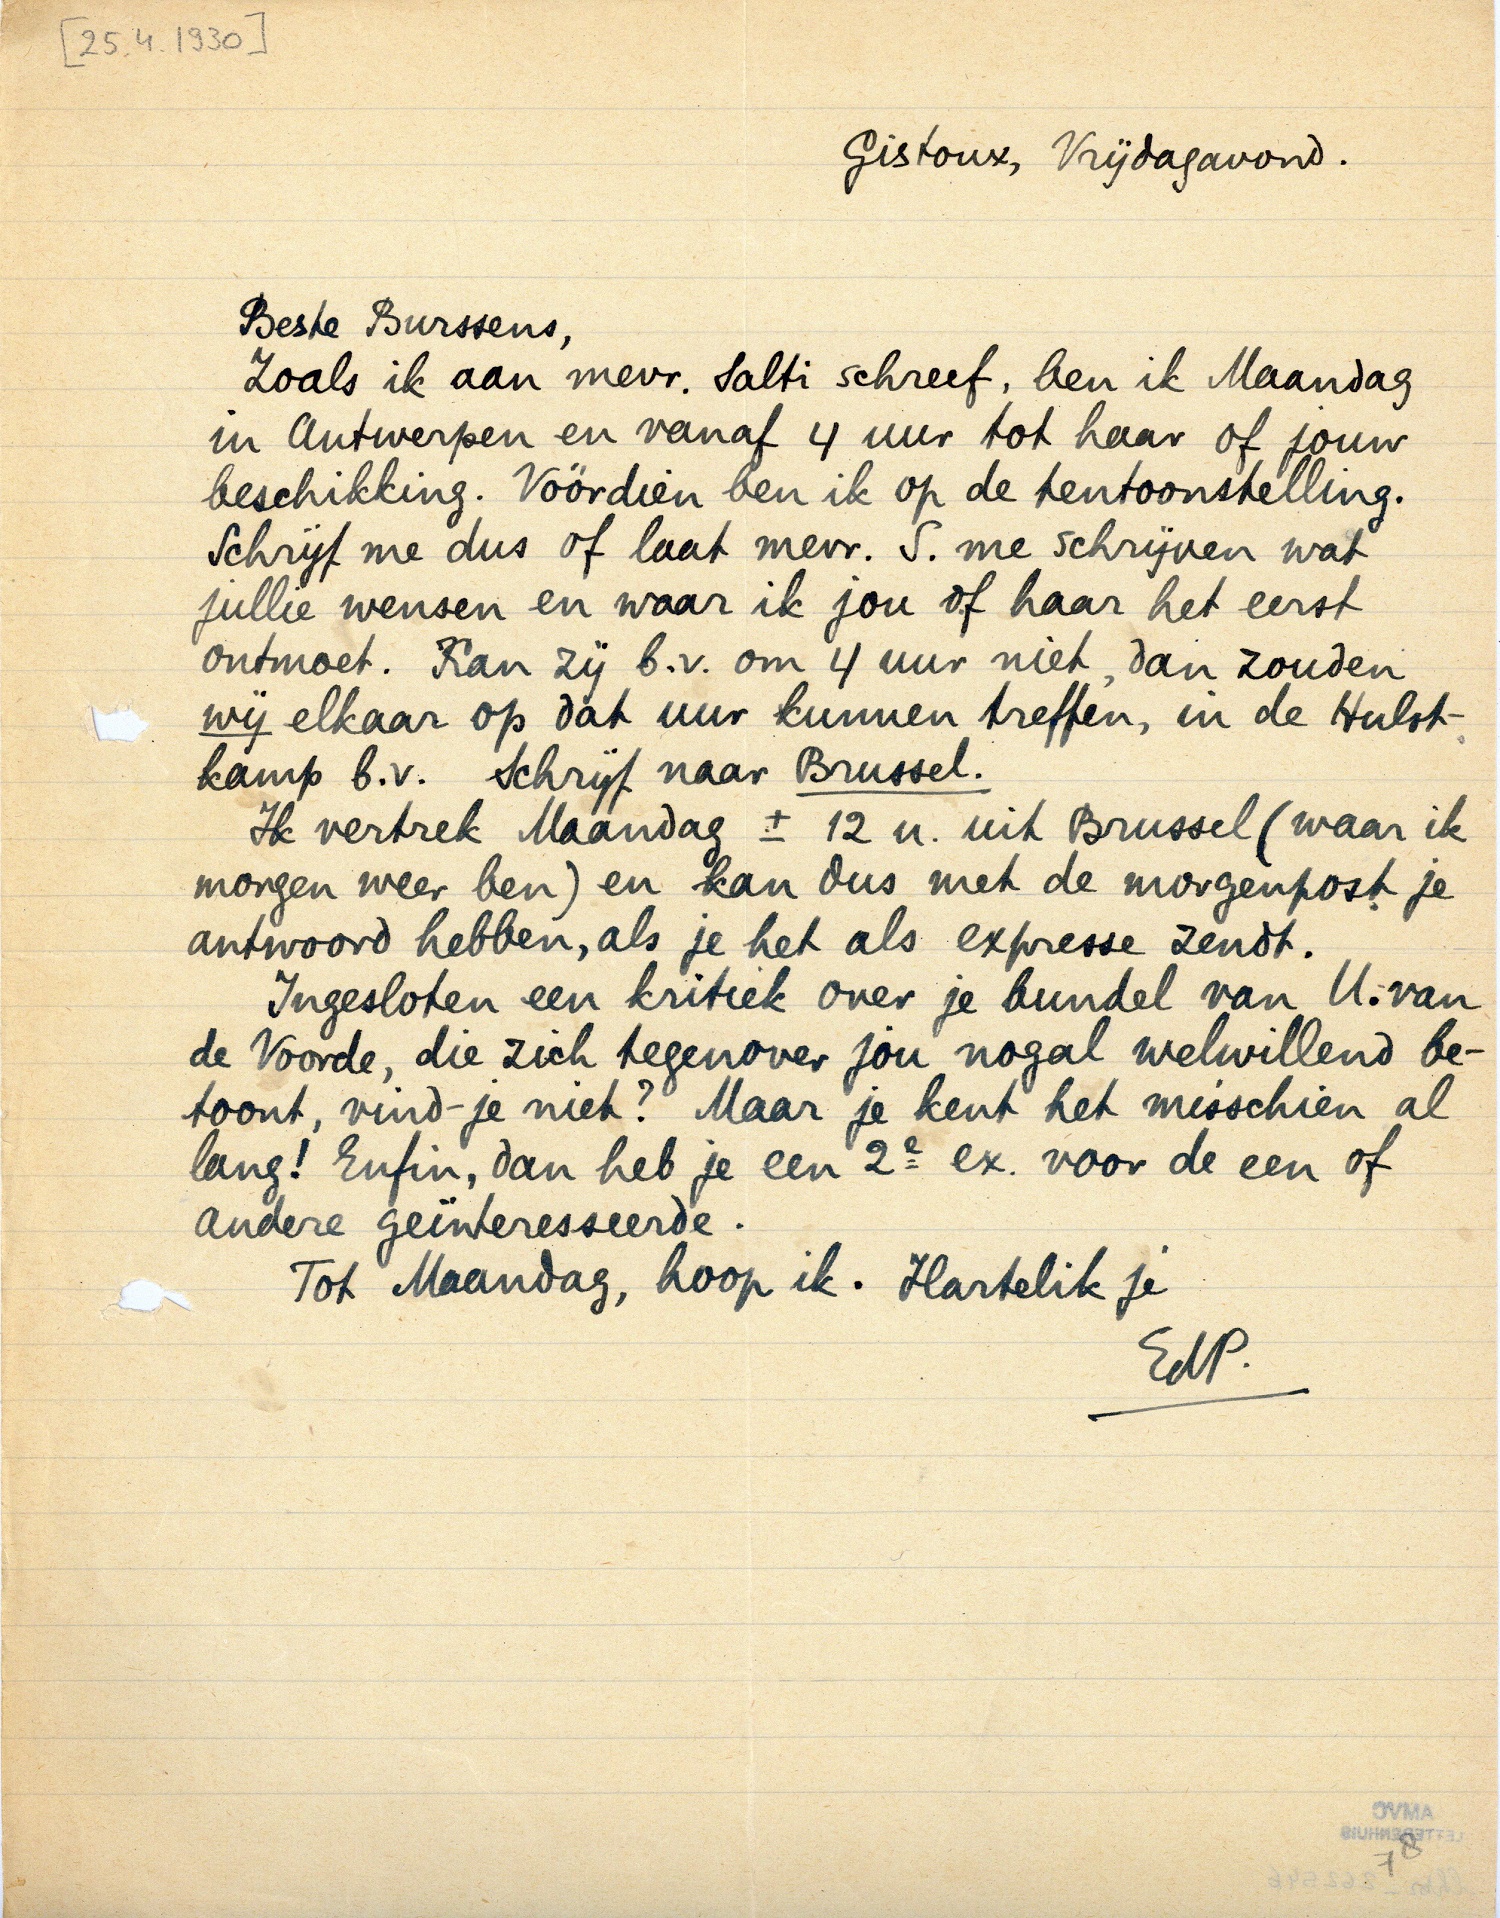 [25.4.1930]
Gistoux, Vrijdagavond.
Beste Burssens,
Zoals ik aan mevr. Salti schreef, ben ik Maandag
in Antwerpen en vanaf 4 uur tot haar of jouw
beschikking. Vóórdien ben ik op de tentoonstelling.
Schrijf me dus of laat mevr. S. me schrijven wat
jullie wensen en waar ik jou of haar het eerst
ontmoet. Kan zij b.v. om 4 uur niet, dan zouden
wij elkaar op dat uur kunnen treffen, in de Hulst-
kamp b.v. Schrijf naar Brussel.
Ik vertrek Maandag ± 12 u. uit Brussel (waar ik
morgen weer ben) en kan dus met de morgenpost je
antwoord hebben, als je het als expresse zendt.
Ingesloten een kritiek over je bundel van U. van
de Voorde, die zich tegenover jou nogal welwillend be-
toont, vind-je niet? Maar je kent het misschien al
lang! Enfin, dan heb je een 2e ex. voor de een of
andere geïnteresseerde.
Tot Maandag, hoop ik. Hartelik je
EdP.
AMVC
LETTERENHUIS
78